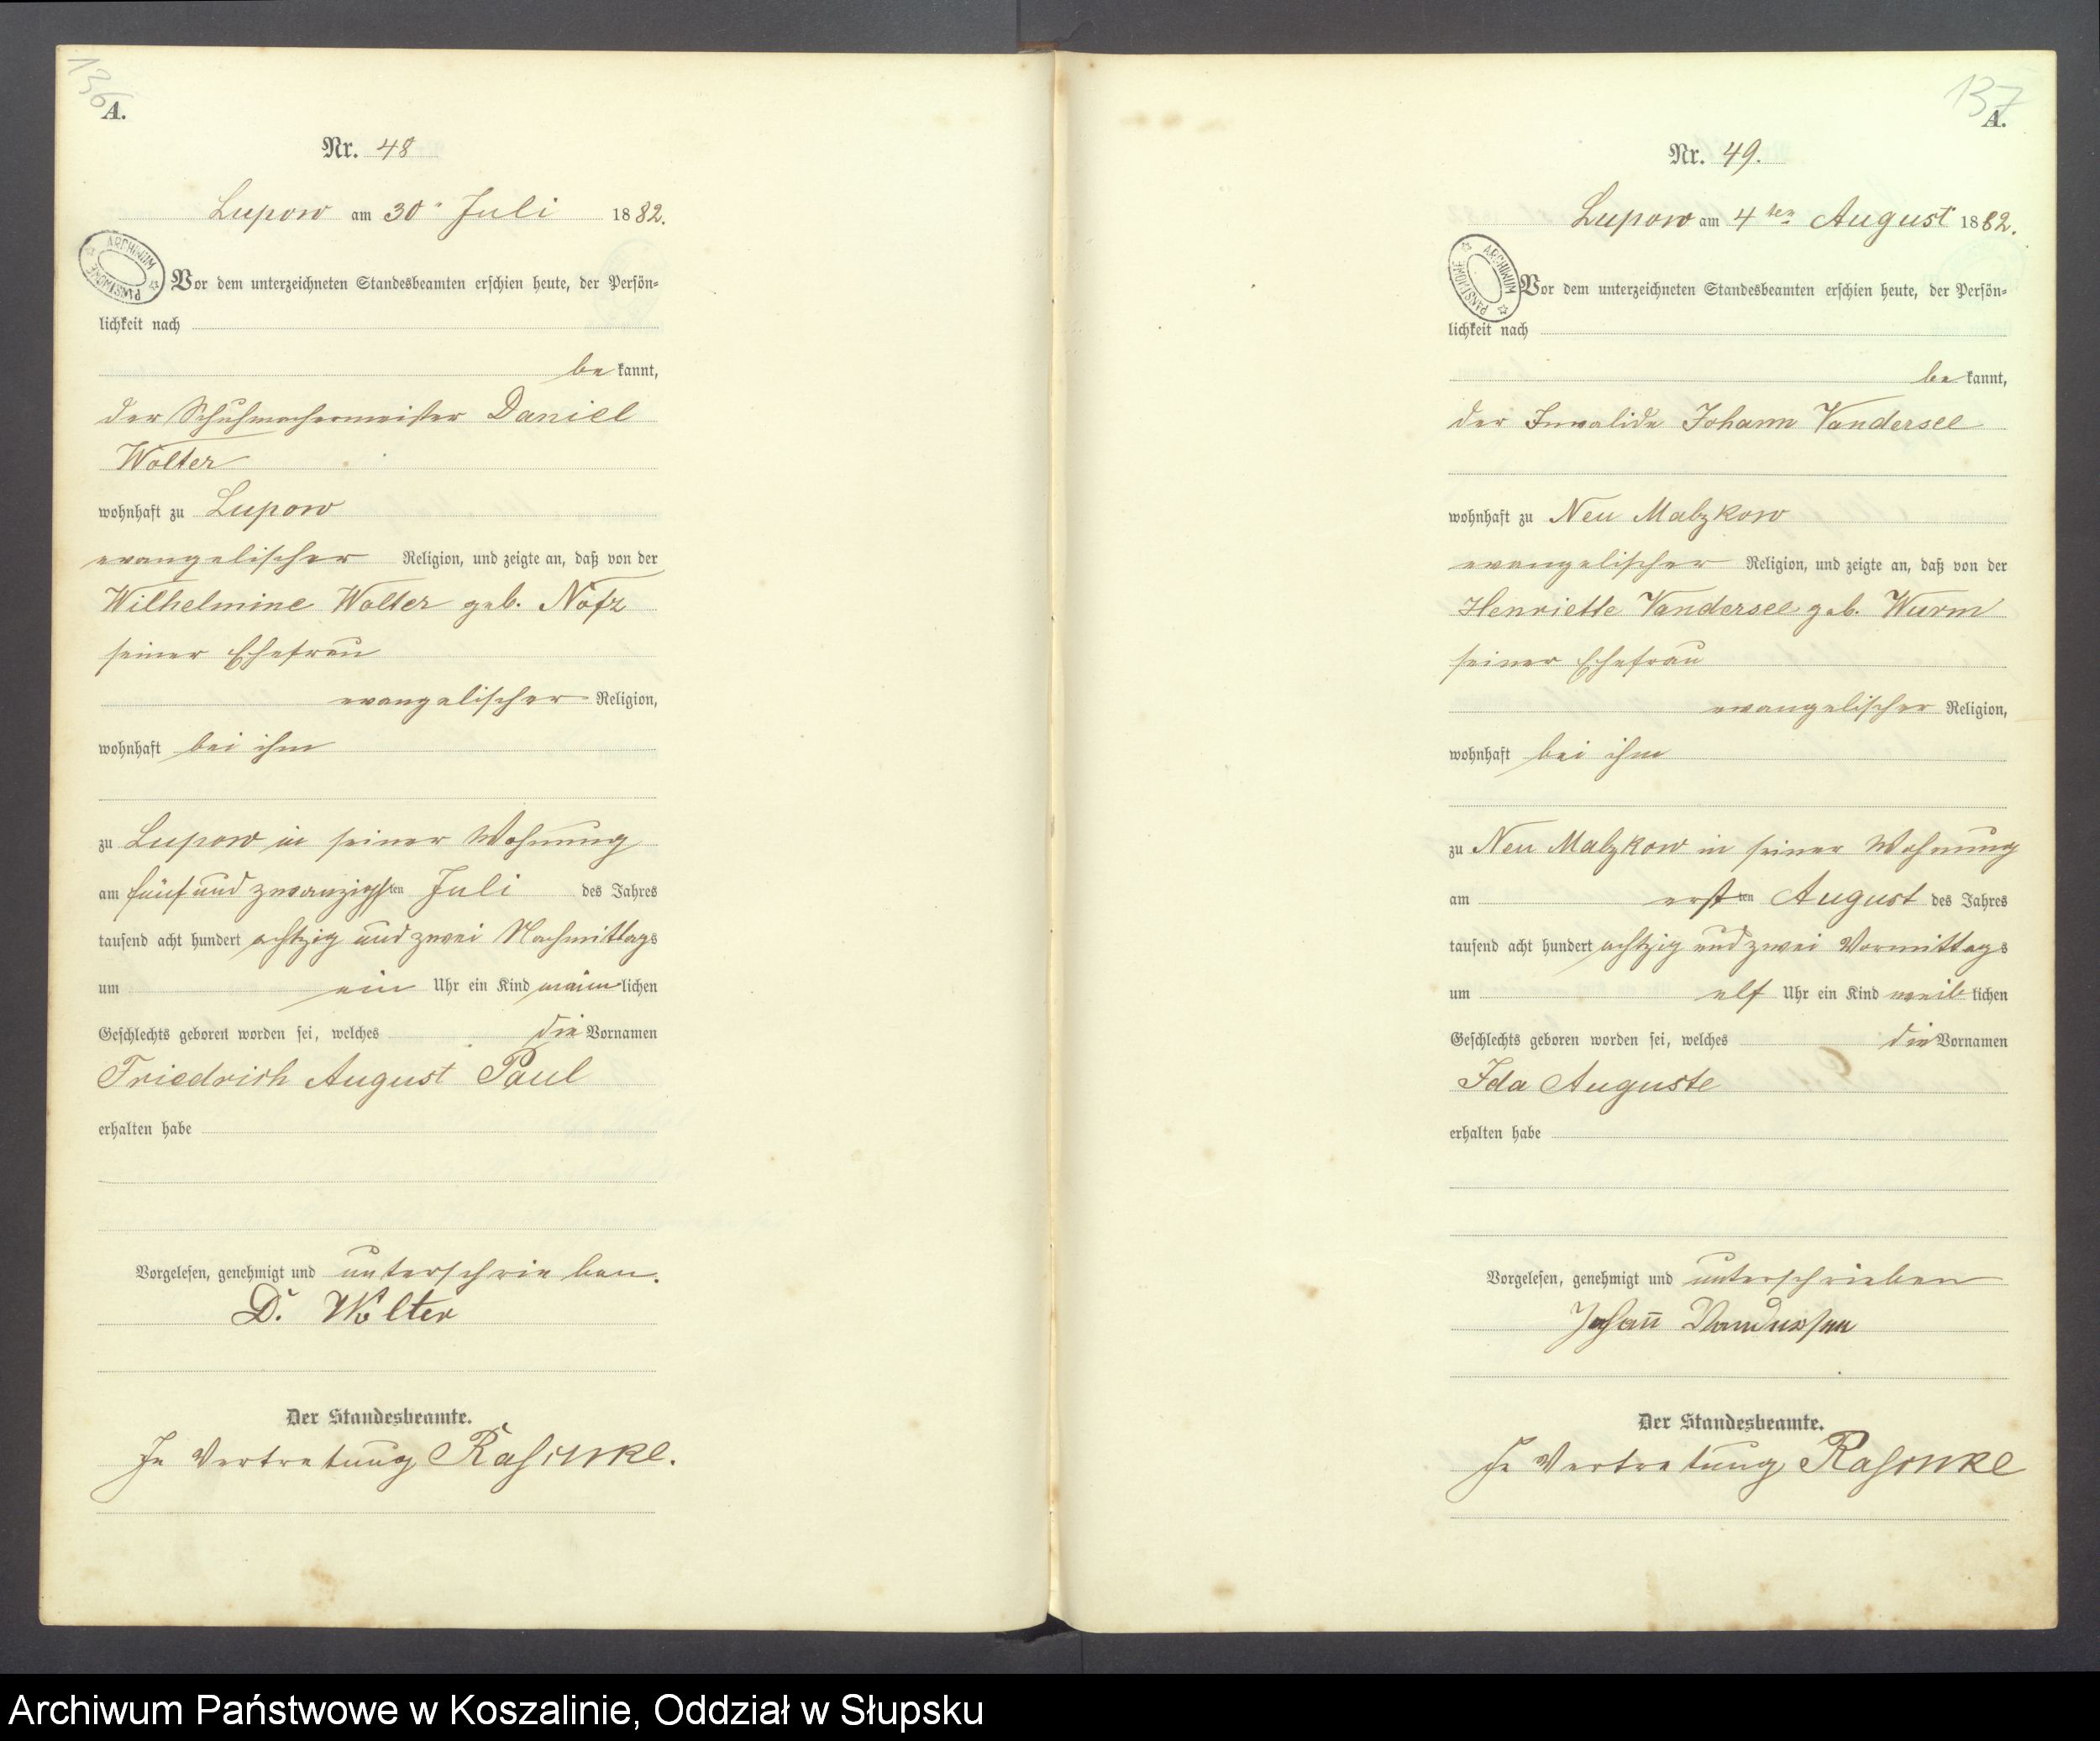 136
A.
Nr. 48
Lupow am 30. Juli 1882.
ARCHIWUM PAŃSTWOWE
Vor dem unterzeichneten Standesbeamten erschien heute, der Persön-
lichkeit nach
be kannt,
der Schuhmachermeister Daniel
Wolter
wohnhaft zu Lupow
evangelischer Religion, und zeigte an, daß von der
Wilhelmine Wolter geb. Notz
seiner Ehefrau
evangelischer Religion,
wohnhaft bei ihm
zu Lupow in seiner Wohnung
am fünf und zwanzigsten Juli des Jahres
tausend acht hundert achtzig und zwei Nachmittags
um ein Uhr ein Kind männlichen
Geschlechts geboren worden sei, welches die Vornamen
Friedrich August Paul
erhalten habe
Vorgelesen, genehmigt und unterschrieben.
D. Wolter
Der Standesbeamte.
In Vertretung
137
A.
Nr. 49.
Lupow am 4ten August 1882.
ARCHIWUM PAŃSTWOWE
Vor dem unterzeichneten Standesbeamten erschien heute, der Persön-
lichkeit nach
be kannt,
der Invalide Johann Vandersee
wohnhaft zu Neu Malzkow
evangelischer Religion, und zeigte an, daß von der
Henriette Vandersee geb. Wurm
seiner Ehefrau
evangelischer Religion,
wohnhaft bei ihm
zu Neu Malzkow in seiner Wohnung
am ersten August des Jahres
tausend acht hundert achtzig und zwei Vormittags
um elf Uhr ein Kind weiblichen
Geschlechts geboren worden sei, welches die Vornamen
Ida Auguste
erhalten habe
Vorgelesen, genehmigt und unterschrieben
Johann Vandersee
Der Standesbeamte.
In Vertretung
Archiwum Państwowe w Koszalinie, Oddział w Słupsku